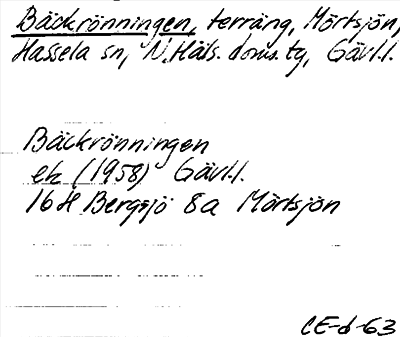 Bäckrönningen, terräng, Mörtsjön,
Hassela sn, N. Häls. doms. tg, Gävl.l.
Bäckrönningen
ek (1958) Gävl.l.
16H Bergsjö 8a Mörtsjön
CE-d-63